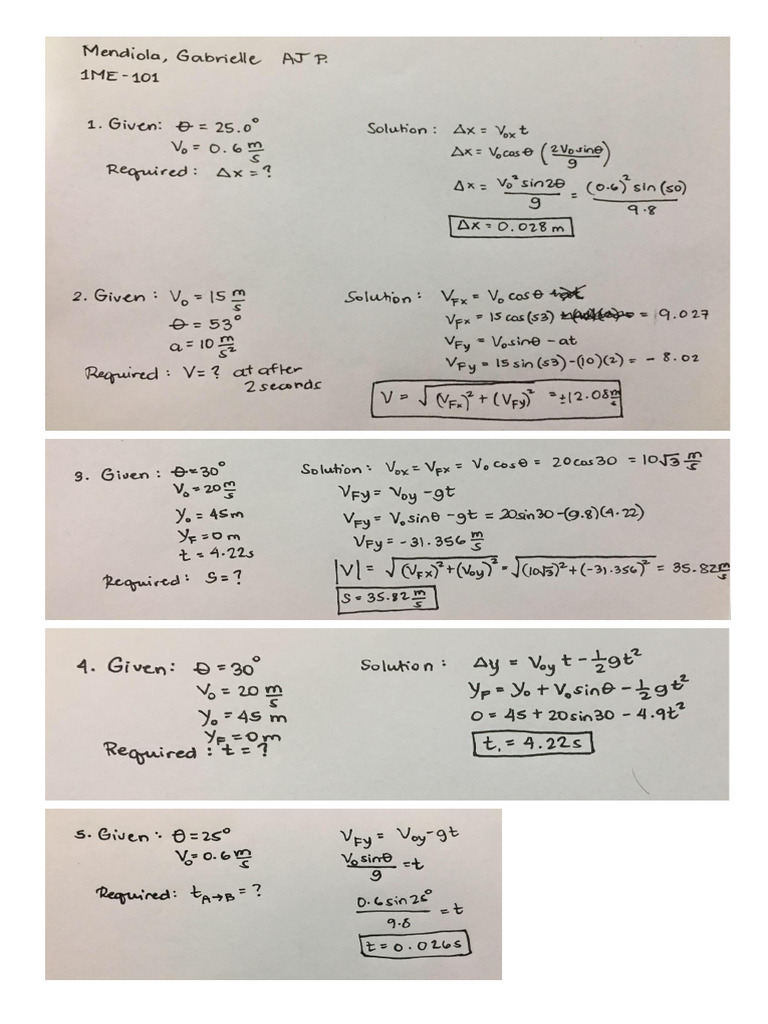 Mendiola, Gabrielle AJ P.
1ME-101
1. Given: θ = 25.0°
V₀ = 0.6 m/s
Required: Δx = ?
Solution: Δx = V₀ₓ t
Δx = V₀cosθ (2V₀sinθ/g)
Δx = V₀² sin2θ/g = (0.6)² sin(50)/9.8
Δx = 0.028 m
2. Given: V₀ = 15 m/s
θ = 53°
a = 10 m/s²
Required: V = ? at after
2 seconds
Solution: V_Fx = V₀ cosθ
V_Fx = 15 cos(53) = 9.027
V_Fy = V₀sinθ - at
V_Fy = 15 sin(53) - (10)(2) = - 8.02
V = √((V_Fx)² + (V_Fy)²) = ±12.08 m/s
3. Given: θ = 30°
V₀ = 20 m/s
y₀ = 45m
y_F = 0m
t = 4.22s
Required: S = ?
Solution: V₀ₓ = V_Fx = V₀ cosθ = 20cos30 = 10√3 m/s
V_Fy = V₀y - gt
V_Fy = V₀sinθ - gt = 20sin30 - (9.8)(4.22)
V_Fy = -31.356 m/s
|V| = √((V_Fx)² + (V₀y)²) = √((10√3)² + (-31.356)²) = 35.82 m/s
S = 35.82 m/s
4. Given: θ = 30°
V₀ = 20 m/s
y₀ = 45 m
y_F = 0m
Required: t = ?
Solution: Δy = V₀y t - ½gt²
y_F = y₀ + V₀sinθ - ½gt²
0 = 45 + 20sin30 - 4.9t²
t, = 4.22s
5. Given: θ = 25°
V₀ = 0.6 m/s
Required: t_A→B = ?
V_Fy = V₀y - gt
V₀sinθ/g = t
0.6sin25°/9.8 = t
t = 0.026s